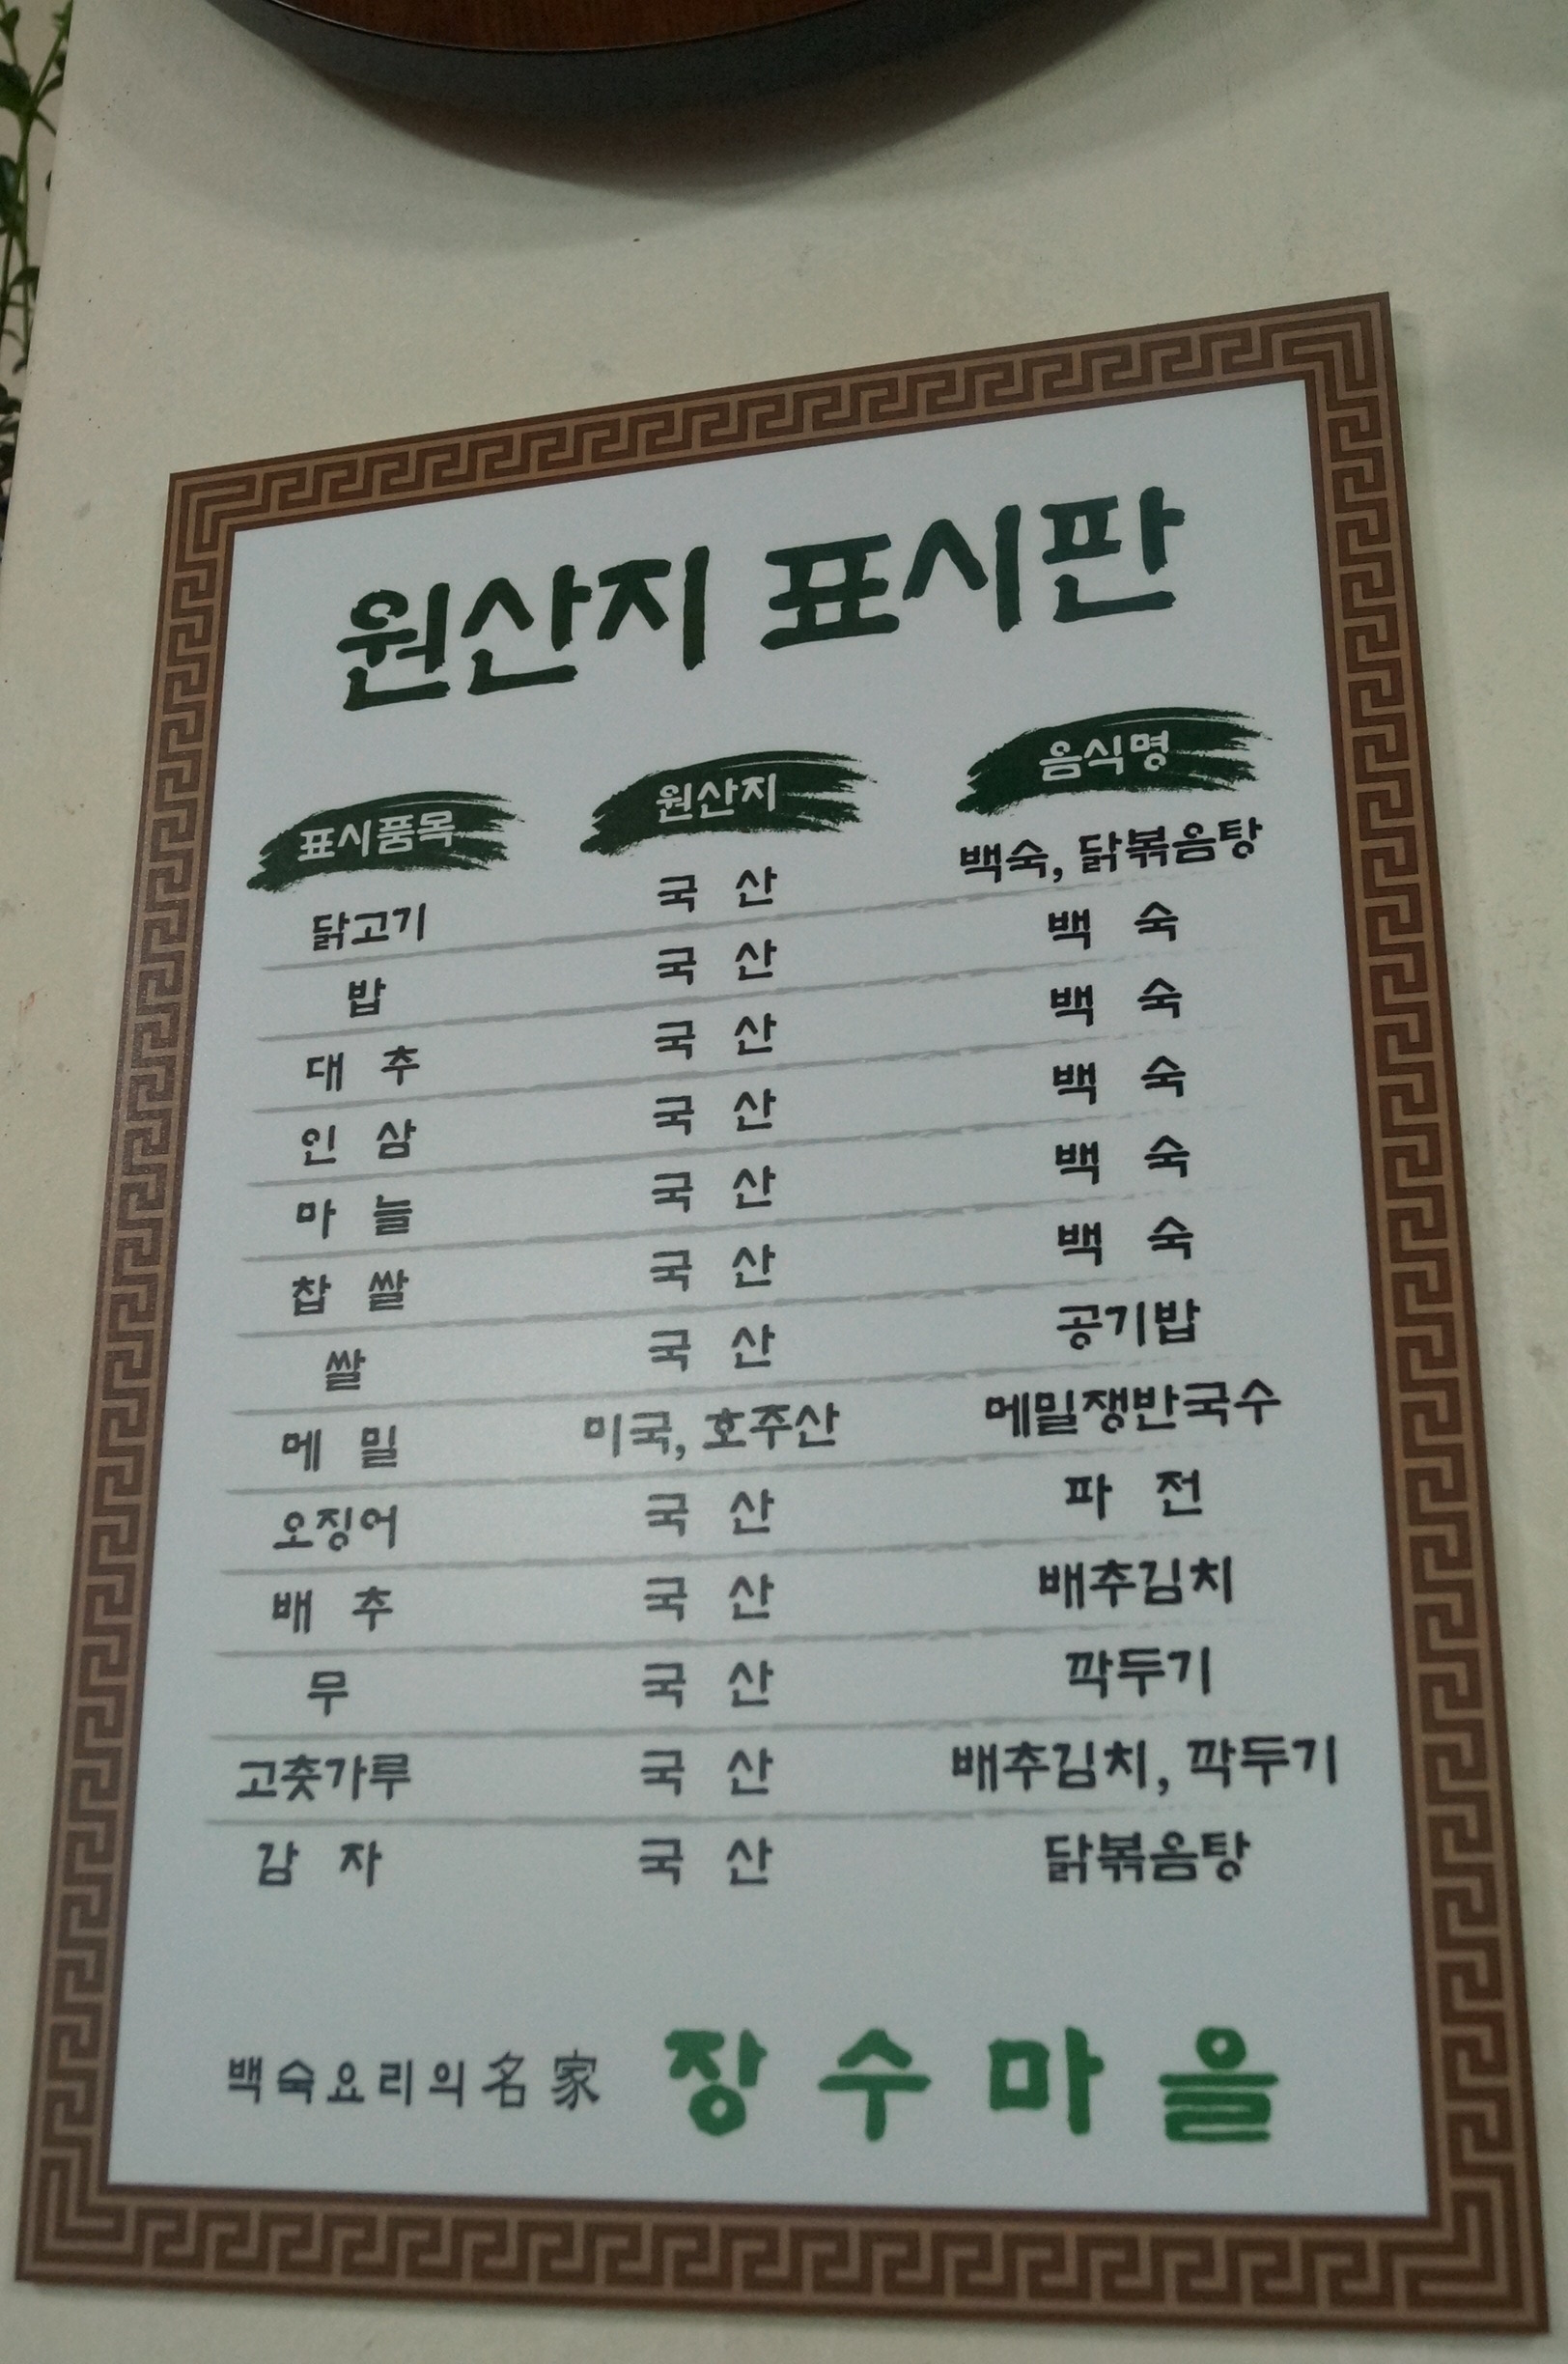 원산지 표시판
표시품목 원산지 음식명
닭고기 국 산 백숙, 닭볶음탕
밥 국 산 백 숙
대 추 국 산 백 숙
인 삼 국 산 백 숙
마 늘 국 산 백 숙
찹 쌀 국 산 백 숙
쌀 국 산 공기밥
메 밀 미국, 호주산 메밀쟁반국수
오징어 국 산 파 전
배 추 국 산 배추김치
무 국 산 깍두기
고춧가루 국 산 배추김치, 깍두기
감 자 국 산 닭볶음탕
백숙요리의 名家 장수마을